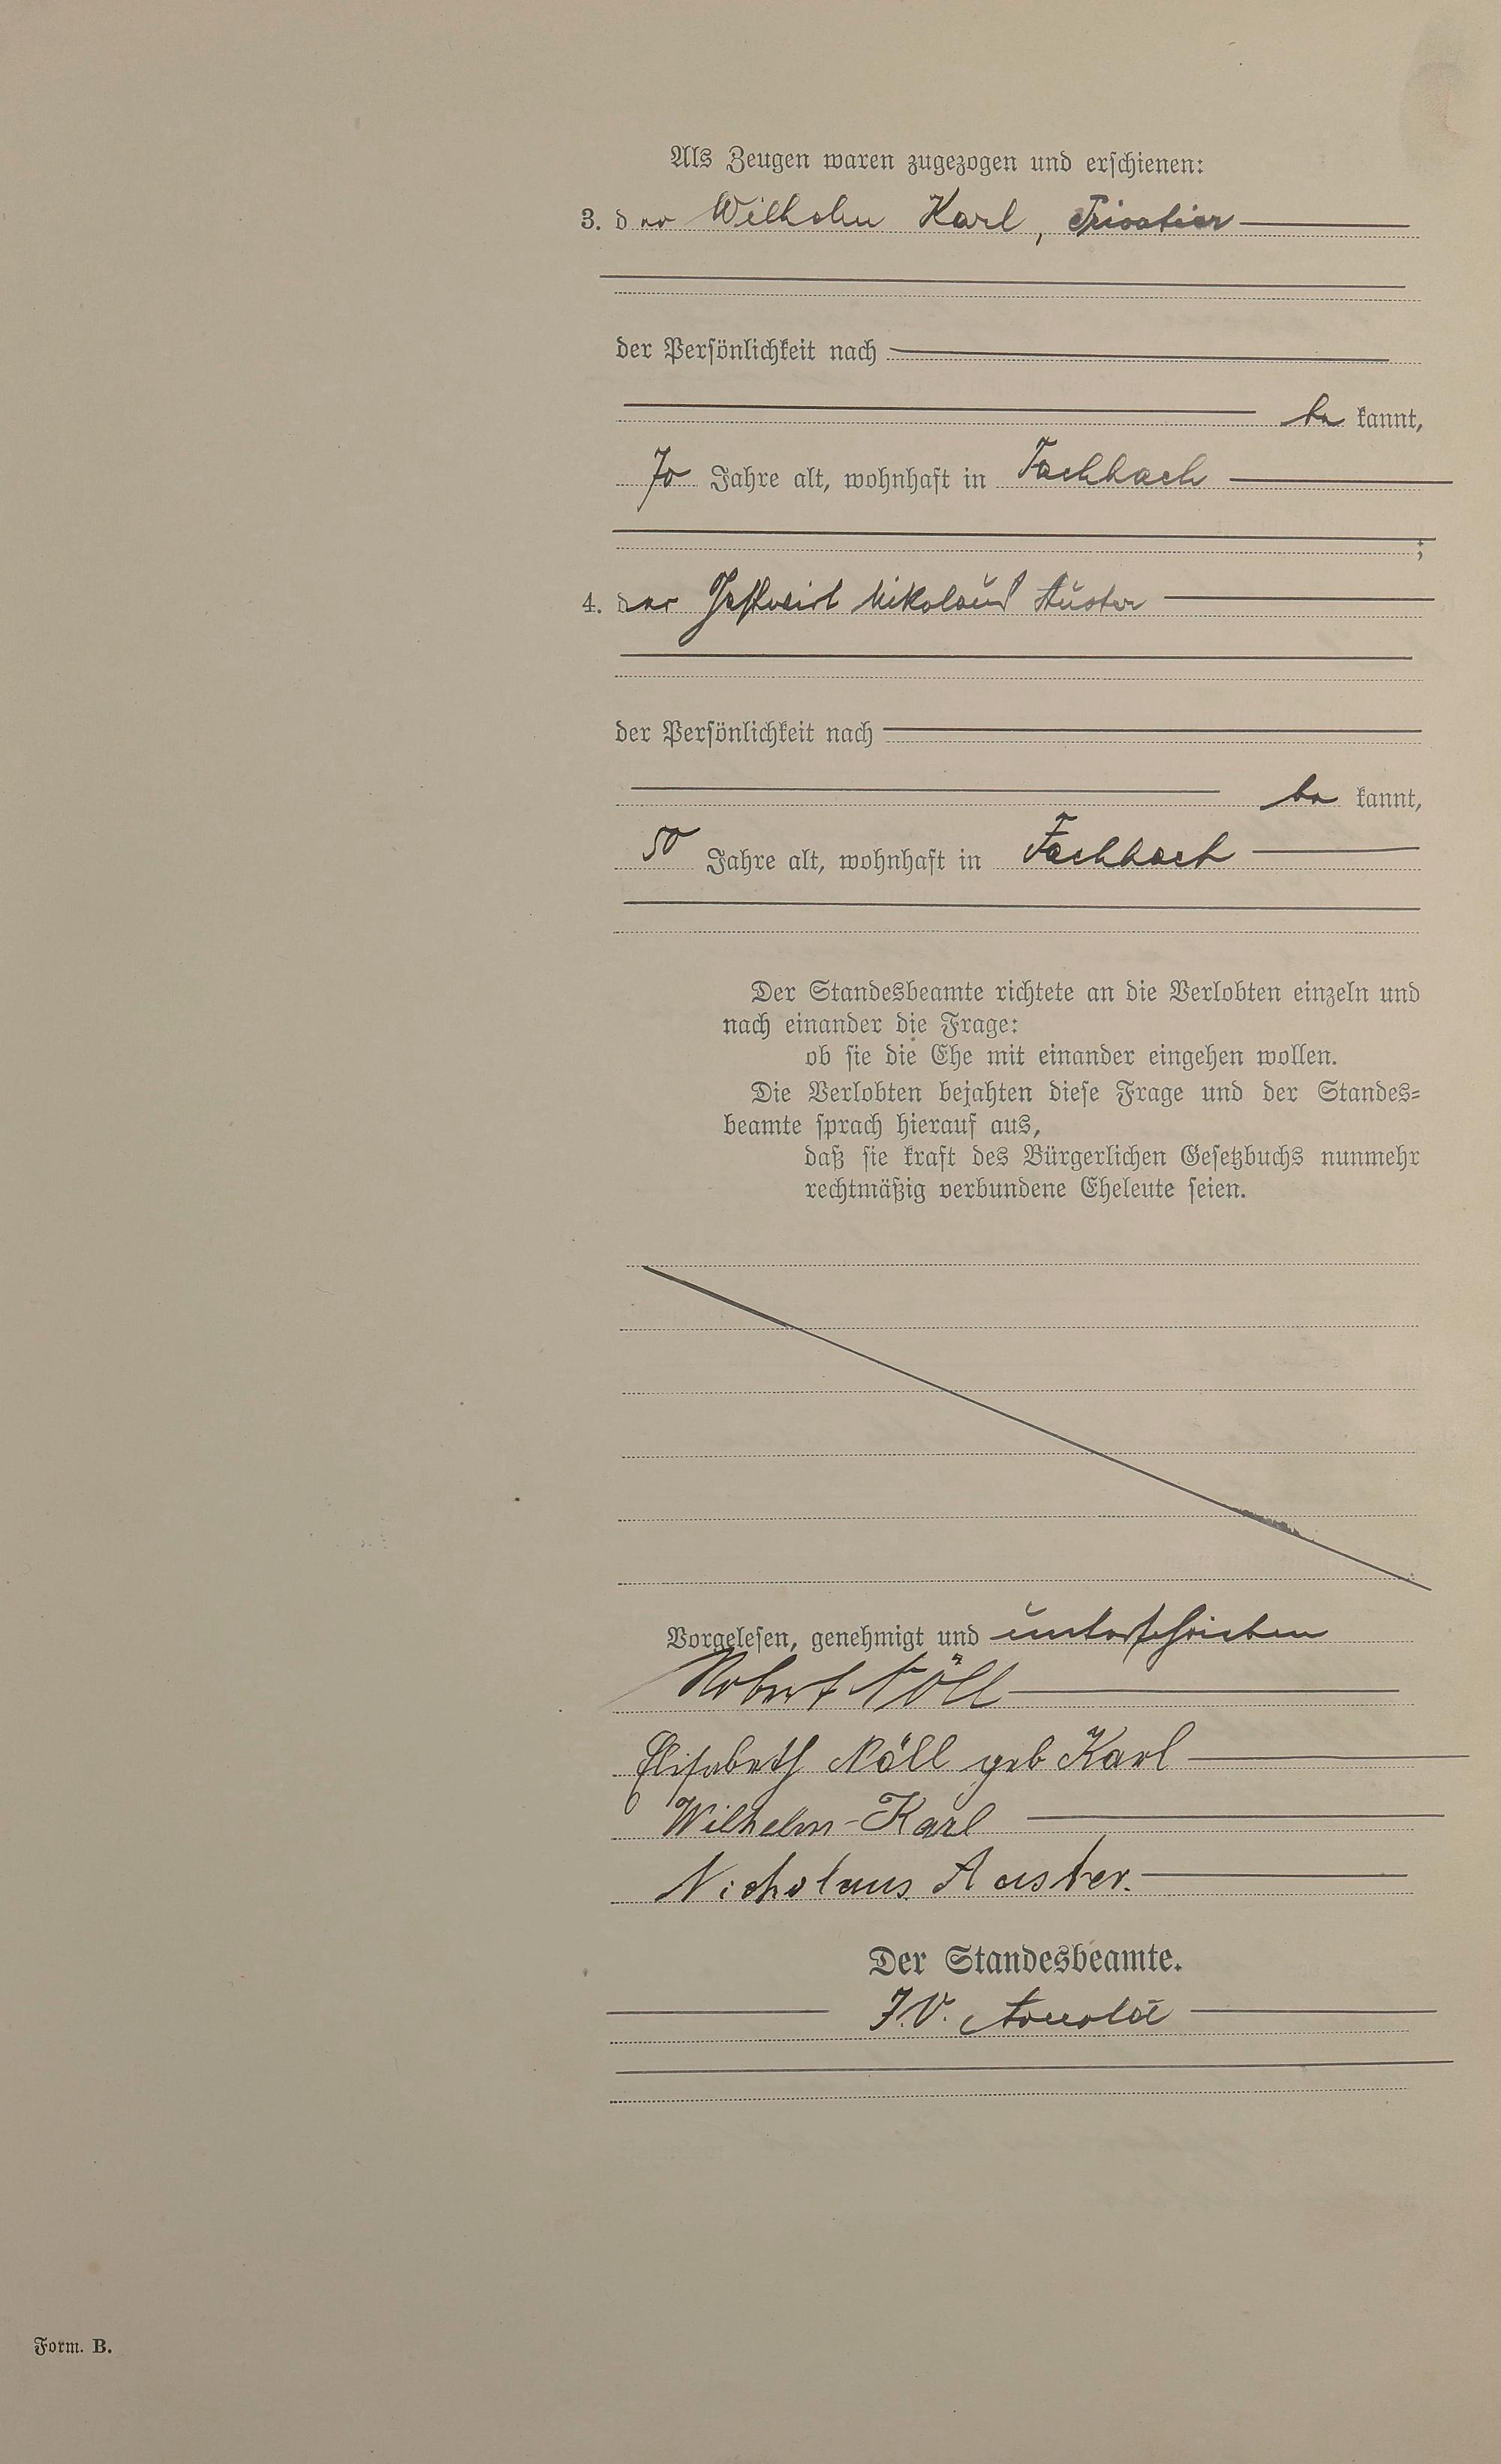 Als Zeugen waren zugezogen und erschienen:
3. der Wilhelm Karl, Privatier
der Persönlichkeit nach
be kannt,
70 Jahre alt, wohnhaft in Fachbach
;
4. der Gastwirt Nikolaus Auster
der Persönlichkeit nach
be kannt,
50 Jahre alt, wohnhaft in Fachbach
Der Standesbeamte richtete an die Verlobten einzeln und
nach einander die Frage:
ob sie die Ehe mit einander eingehen wollen.
Die Verlobten bejahten diese Frage und der Standes-
beamte sprach hierauf aus,
daß sie kraft des Bürgerlichen Gesetzbuchs nunmehr
rechtmäßig verbundene Eheleute seien.
Vorgelesen, genehmigt und unterschrieben
Robert Nöll
Elisabeth Nöll geb Karl
Wilhelm-Karl
Nicholaus Auster.
Der Standesbeamte.
J.V. Arnold
Form. B.